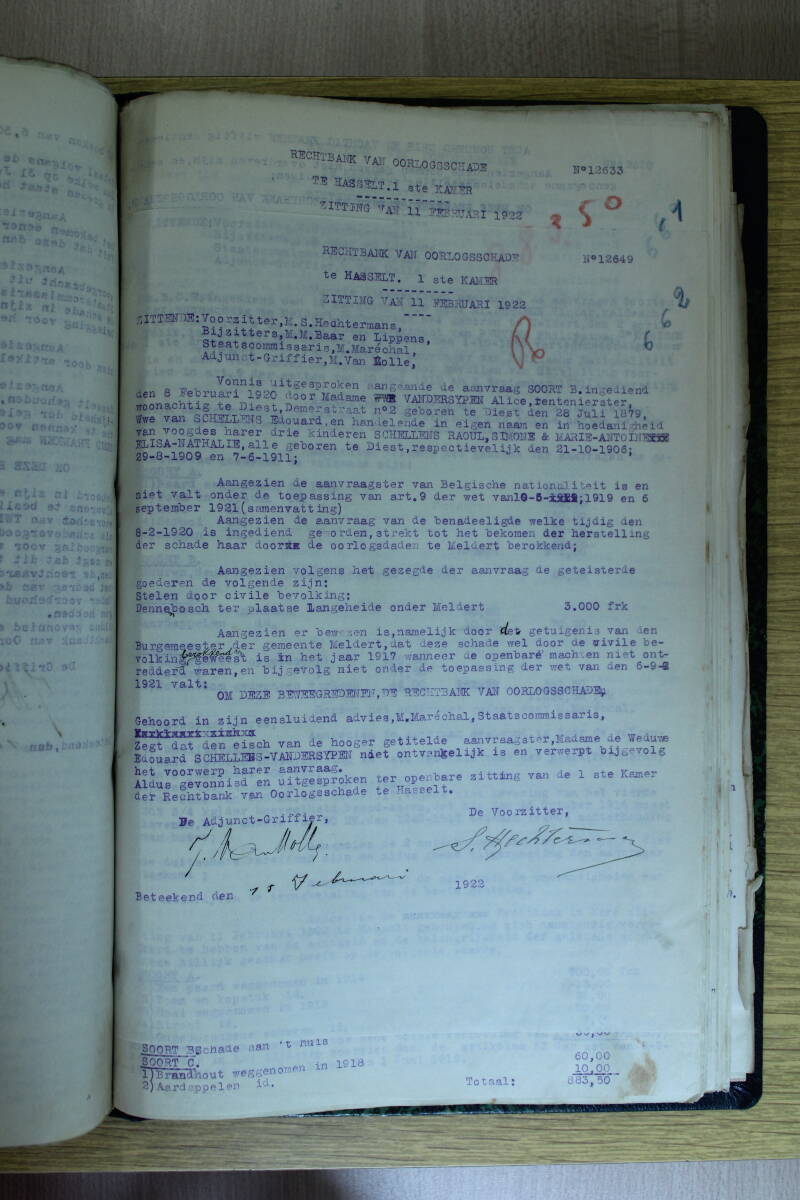 RECHTBANK VAN OORLOGSSCHADE N°12633
TE HASSELT.1 ste KAMER
ZITTING VAN 11 FEBRUARI 1922
250
6,1
RECHTBANK VAN OORLOGSSCHADE N°12649
te HASSELT. 1 ste KAMER
ZITTING VAN 11 FEBRUARI 1922
662
ZITTENDE:Voorzitter,M.S.Hechtermans,
Bijzitters,M.M.Baar en Lippens,
Staatscommissaris,M.Maréchal,
Adjunct-Griffier,M.Van Molle,
Vonnis uitgesproken aangaande de aanvraag SOORT B.ingediend
den 8 Februari 1920 door Madame VANDERSYPEN Alice,rentenierster,
woonachtig te Diest,Demerstraat n°2 geboren te Diest den 28 Juli 1879,
Wwe van SCHELLENS Edouard,en handelende in eigen naam en in hoedanigheid
van voogdes harer drie kinderen SCHELLENS RAOUL,SIMONE & MARIE-ANTOINE
ELISA-NATHALIE,alle geboren te Diest,respectievelijk den 21-10-1906;
29-8-1909 en 7-6-1911;
Aangezien de aanvraagster van Belgische nationaliteit is en
niet valt onder de toepassing van art.9 der wet van10-5-1919 en 6
september 1921(samenvatting)
Aangezien de aanvraag van de benadeeligde welke tijdig den
8-2-1920 is ingediend geworden,strekt tot het bekomen der herstelling
der schade haar door de oorlogsdaden te Meldert berokkend;
Aangezien volgens het gezegde der aanvraag de geteisterde
goederen de volgende zijn:
Stelen door civile bevolking:
Dennebosch ter plaatse Langeheide onder Meldert 3.000 frk
Aangezien er bewezen is,namelijk door det getuigenis van den
Burgemeester der gemeente Meldert,dat deze schade wel door de civile be-
volking berokkend geweest is in het jaar 1917 wanneer de openbare machten niet ont-
redderd waren,en bijgevolg niet onder de toepassing der wet van den 6-9-
1921 valt:
OM DEZE BEWEEGREDENEN,DE RECHTBANK VAN OORLOGSSCHADE,
Gehoord in zijn eensluidend advies,M.Maréchal,Staatscommissaris,
Zegt dat den eisch van de hooger getitelde aanvraagster,Madame de Weduwe
Edouard SCHELLENS-VANDERSYPEN niet ontvankelijk is en verwerpt bijgevolg
het voorwerp harer aanvraag.
Aldus gevonnisd en uitgesproken ter openbare zitting van de 1 ste Kamer
der Rechtbank van Oorlogsschade te Hasselt.
De Adjunct-Griffier, De Voorzitter,
J. Van Molle. S. Hechtermans
Beteekend den 15 Februari 1922
SOORT BSchade aan 't huis
SOORT C.
1)Brandhout weggenomen in 1918 60,00
2)Aardappelen id. 10,00
Totaal: 883,50